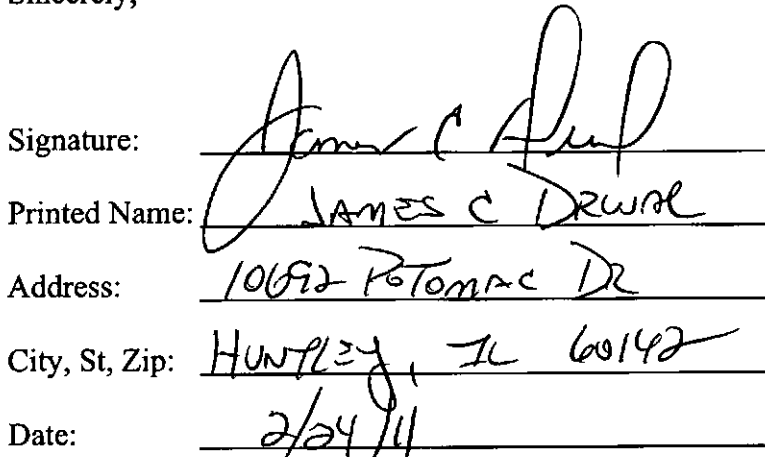 Sincerely,
Signature: James C Drwal
Printed Name: JAMES C DRWAL
Address: 10692 POTOMAC DR
City, St, Zip: HUNTLEY, IL 60142
Date: 2/24/11